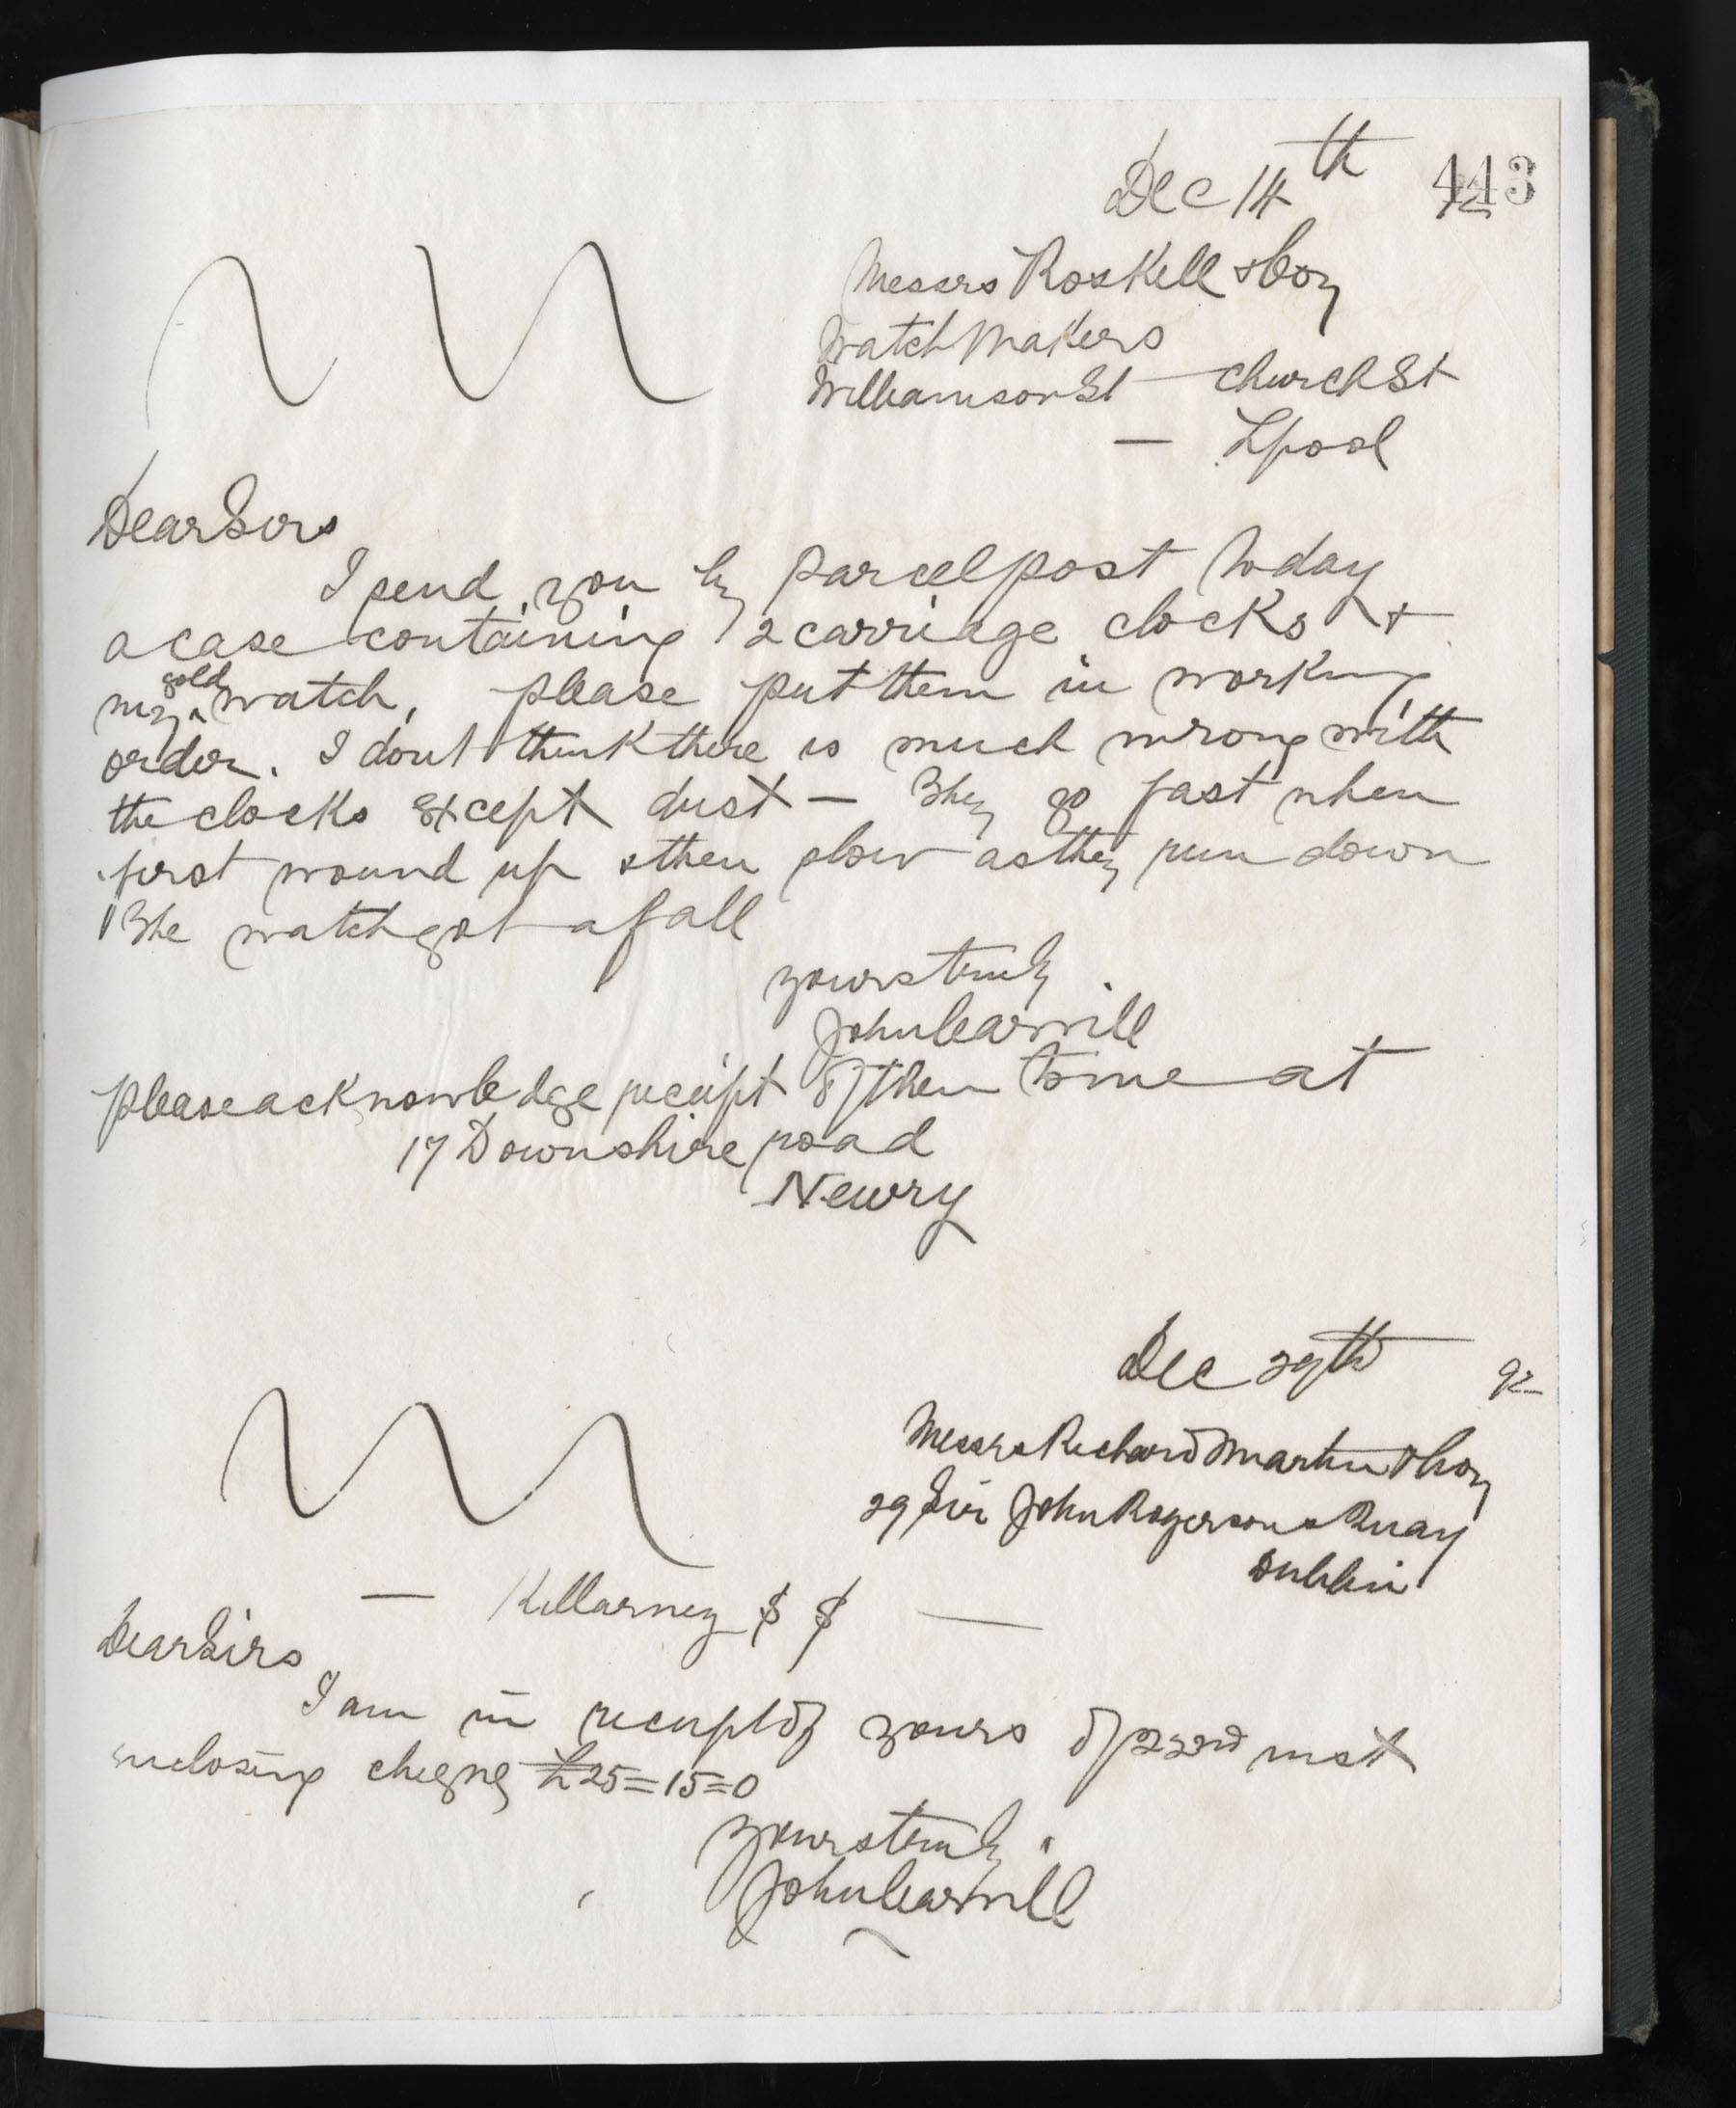 Dec 14th 92
443
Messrs Roskell & Coy
Watch Makers
Williamson St Church St
— Lpool
Dear Sirs
I send you by parcel post today
a case containing 2 carriage clocks &
my gold watch, please put them in working
order. I dont think there is much wrong with
the clocks except dust — They go fast when
first wound up & then slow as they run down
The watch got a fall
yours truly
John Carvill
please acknowledge receipt of them to me at
17 Downshire road
Newry
Dec 29th 92
Messrs Richard Martin & Coy
29 Sir John Rogersons Quay
Dublin
— Killarney $ $ —
Dear Sirs
I am in receipt of yours of 23rd inst
enclosing cheque £25=15=0
yours truly
John Carvill